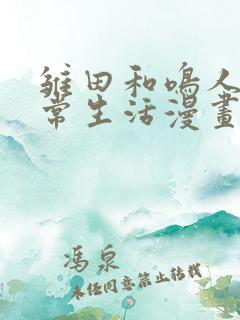 雏田和鳴人
常生活漫畫
馮泉
未任同意禁止转载